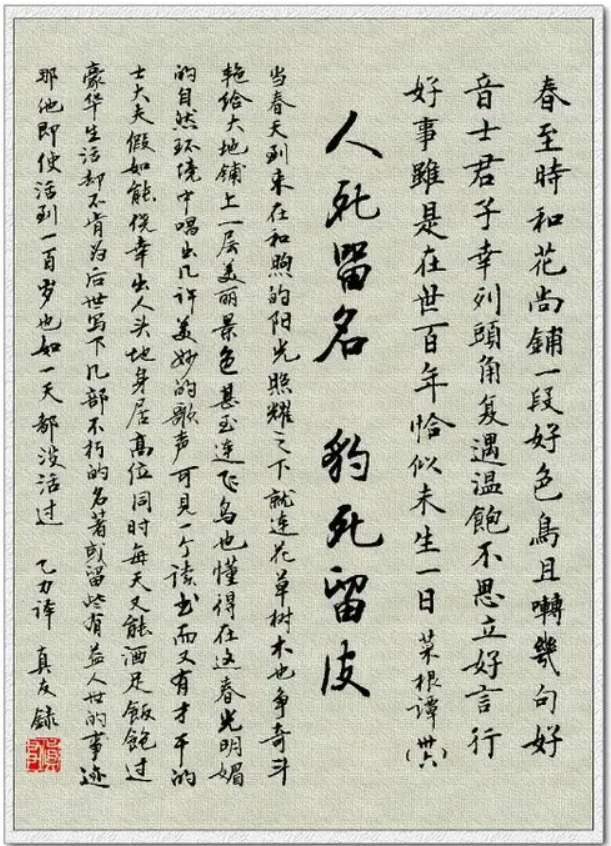 春至時和花尚鋪一段好色鳥且囀幾句好
音士君子幸列頭角复遇溫飽不思立好言行
好事雖是在世百年恰似未生一日 菜根譚(卅六)
人死留名 豹死留皮
当春天到来在和煦的阳光照耀之下就连花草树木也争奇斗
艳给大地铺上一层美丽景色甚至连飞鸟也懂得在这春光明媚
的自然环境中唱出几许美妙的歌声可見一个读书而又有才干的
士大夫假如能侥幸出人头地身居高位同时每天又能酒足飯飽过
豪华生活却不肯为后世写下几部不朽的名著或留些有益人世的事迹
那他即使活到一百岁也如一天都没活过 乙力译 真友錄